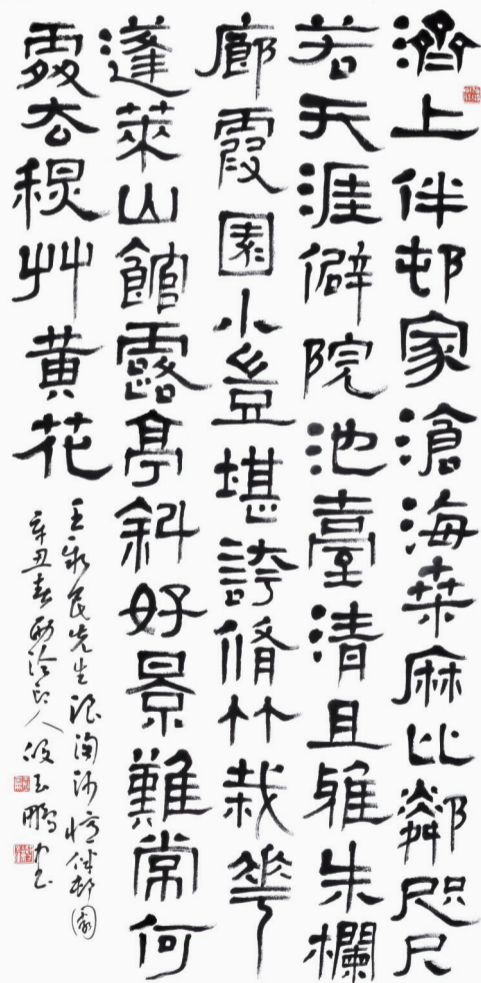 濟上伴邨家滄海桒麻比鄰咫尺
若天涯僻院池臺清且雅朱欄
廊霞園小豈堪誇脩竹栽華
蓬萊山館露亭斜好景難常何
處厺稷艸黃花
王民先生浪淘沙憶伴邨園
辛丑春西泠印人段玉鵬書